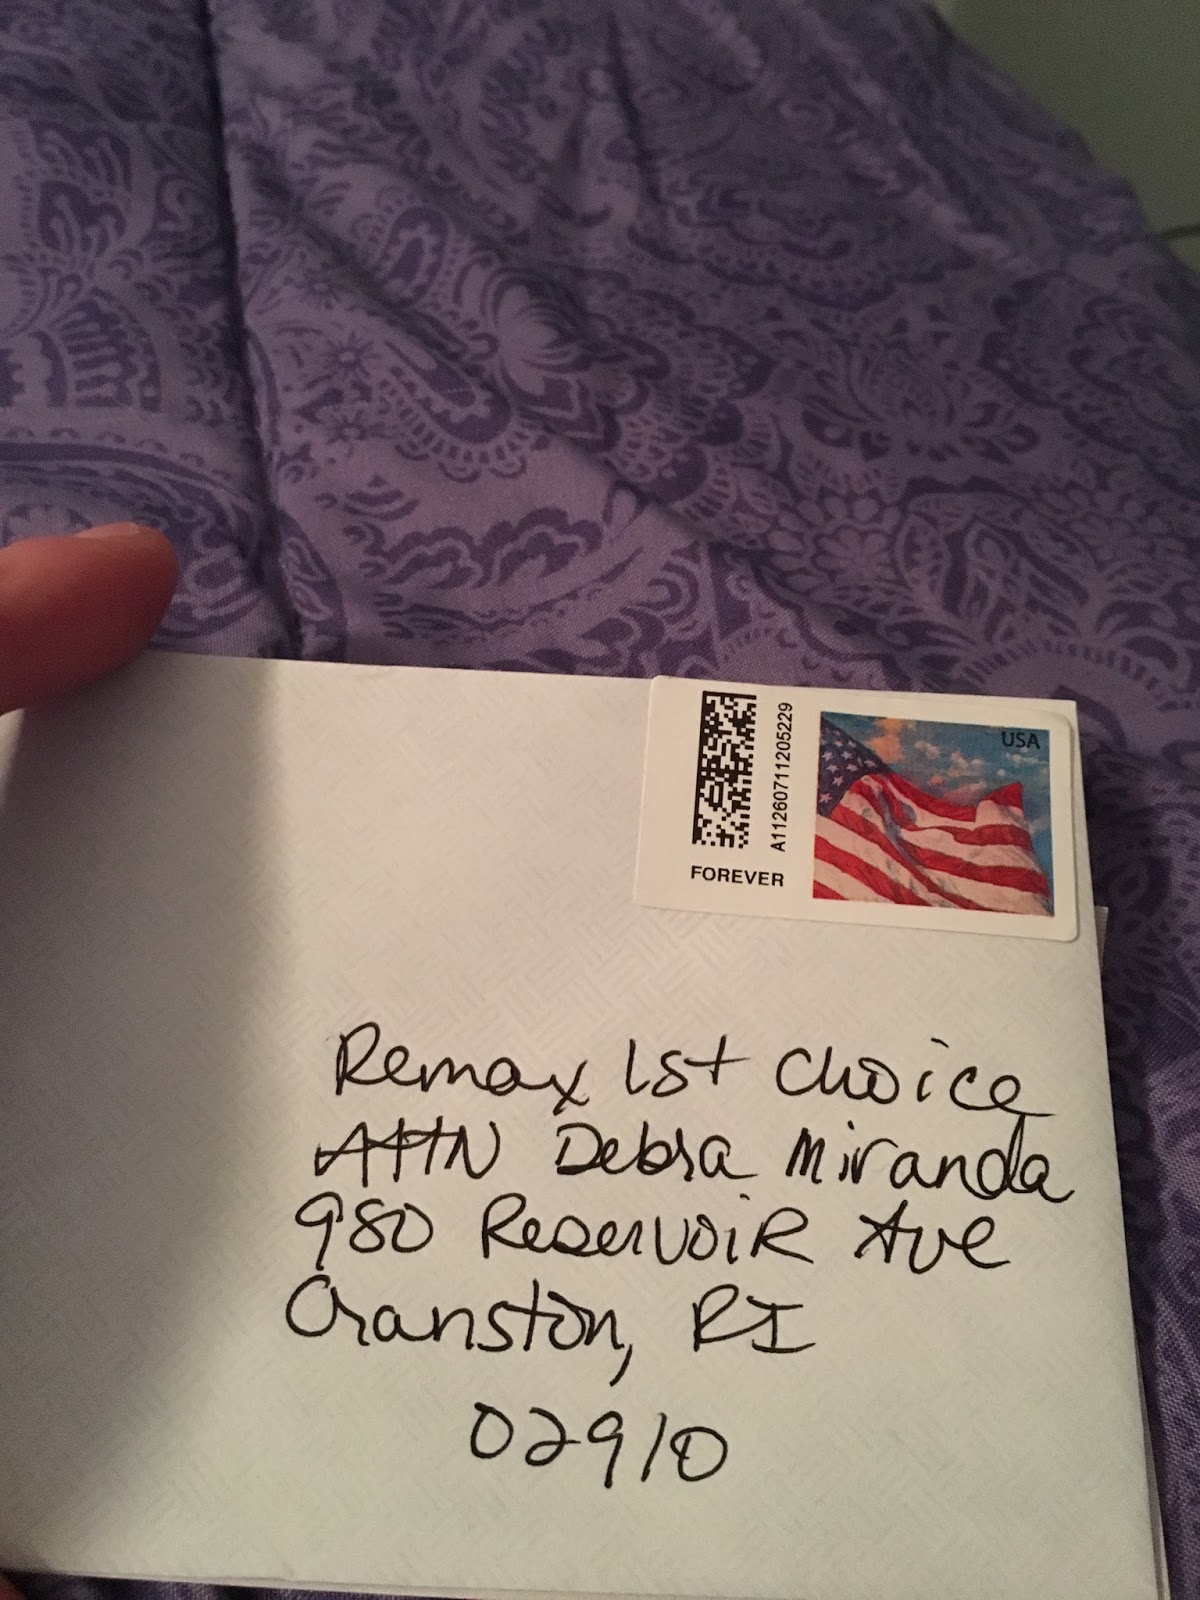 USA
A1126071120 5229
FOREVER
Remax 1st Choice
ATTN Debra Miranda
980 Reservoir Ave
Cranston, RI
02910